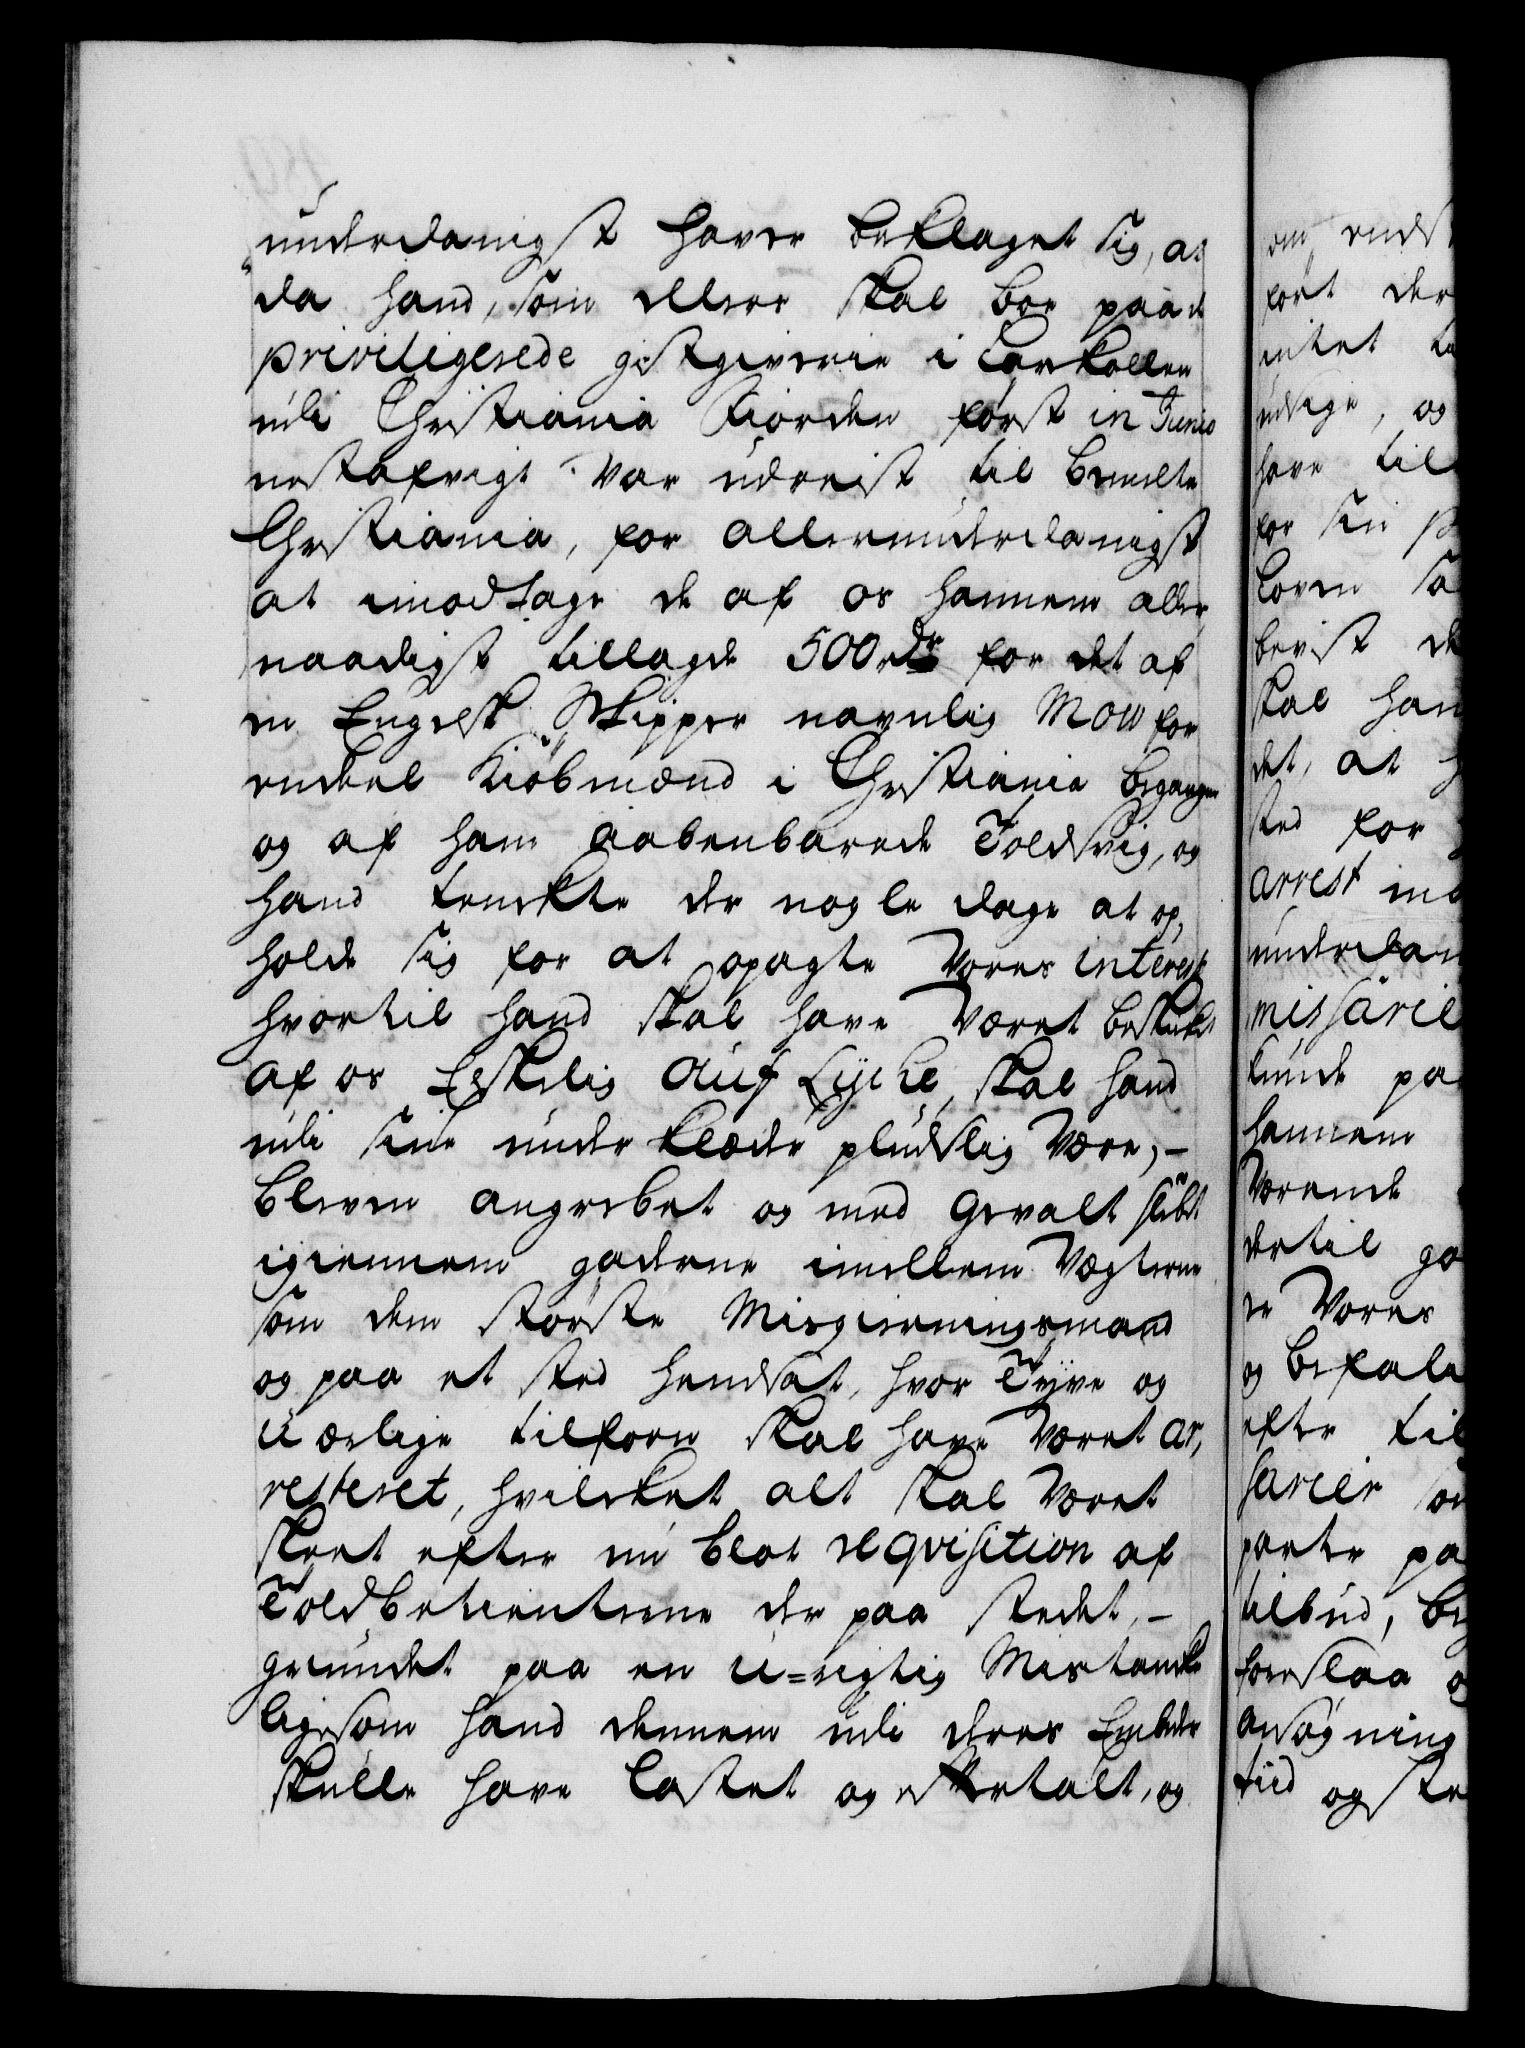 underdanigst haver beklaget sig, at
da hand, som ellers skal boe paa et
privilegerede gestgiverie i Larkollen
udi Christiania Fiorden først in Junio
nestafvigt var udreist til bemelte
Christiania, for allerunderdanigst
at imodtage de af os hannem aller,
naadigst tillagde 500 rdr for det af
en Engelsk Skipper navnlig Mow for
endeel Kiöbmænd i Christiania begangen
og af ham aabenbarede Toldsvig, og
hand tenckte der nogle dage at op,
holde sig for at opagte Vores interesse
hvortil hand skal have været beskicket
af os Elskelig Auf Lÿche, skal hand
udi sine under klæder pludslig være,-
bleven angrebet og med gevalt slæbt
igiennem gaderne imellem Vægterne
som den største Misgierningsmand
og paa et sted hendsat, hvor Tyve og
uærlige tilforn skal have været ar,
resteret, hvilcket alt skal været
skeet efter en blot reqvisition af
Toldbetienterne der paa stedet,-
grundet paa en u=rigtig Mistancke
ligesom hand dennem udi deres Embeder
skulle have lastet og ilde talt, og
om endst
ført der
intet
udsige, og
have til
for sin
Loven
bevist de
skal han
det, at
sted for
arrest
underdan
missarie
kunde pa
hannem
Værende
dertil
de Vores
og befale
efter til
sarier
parter pa
tilbud,
foreslaa
ansøgning
tiid og ste